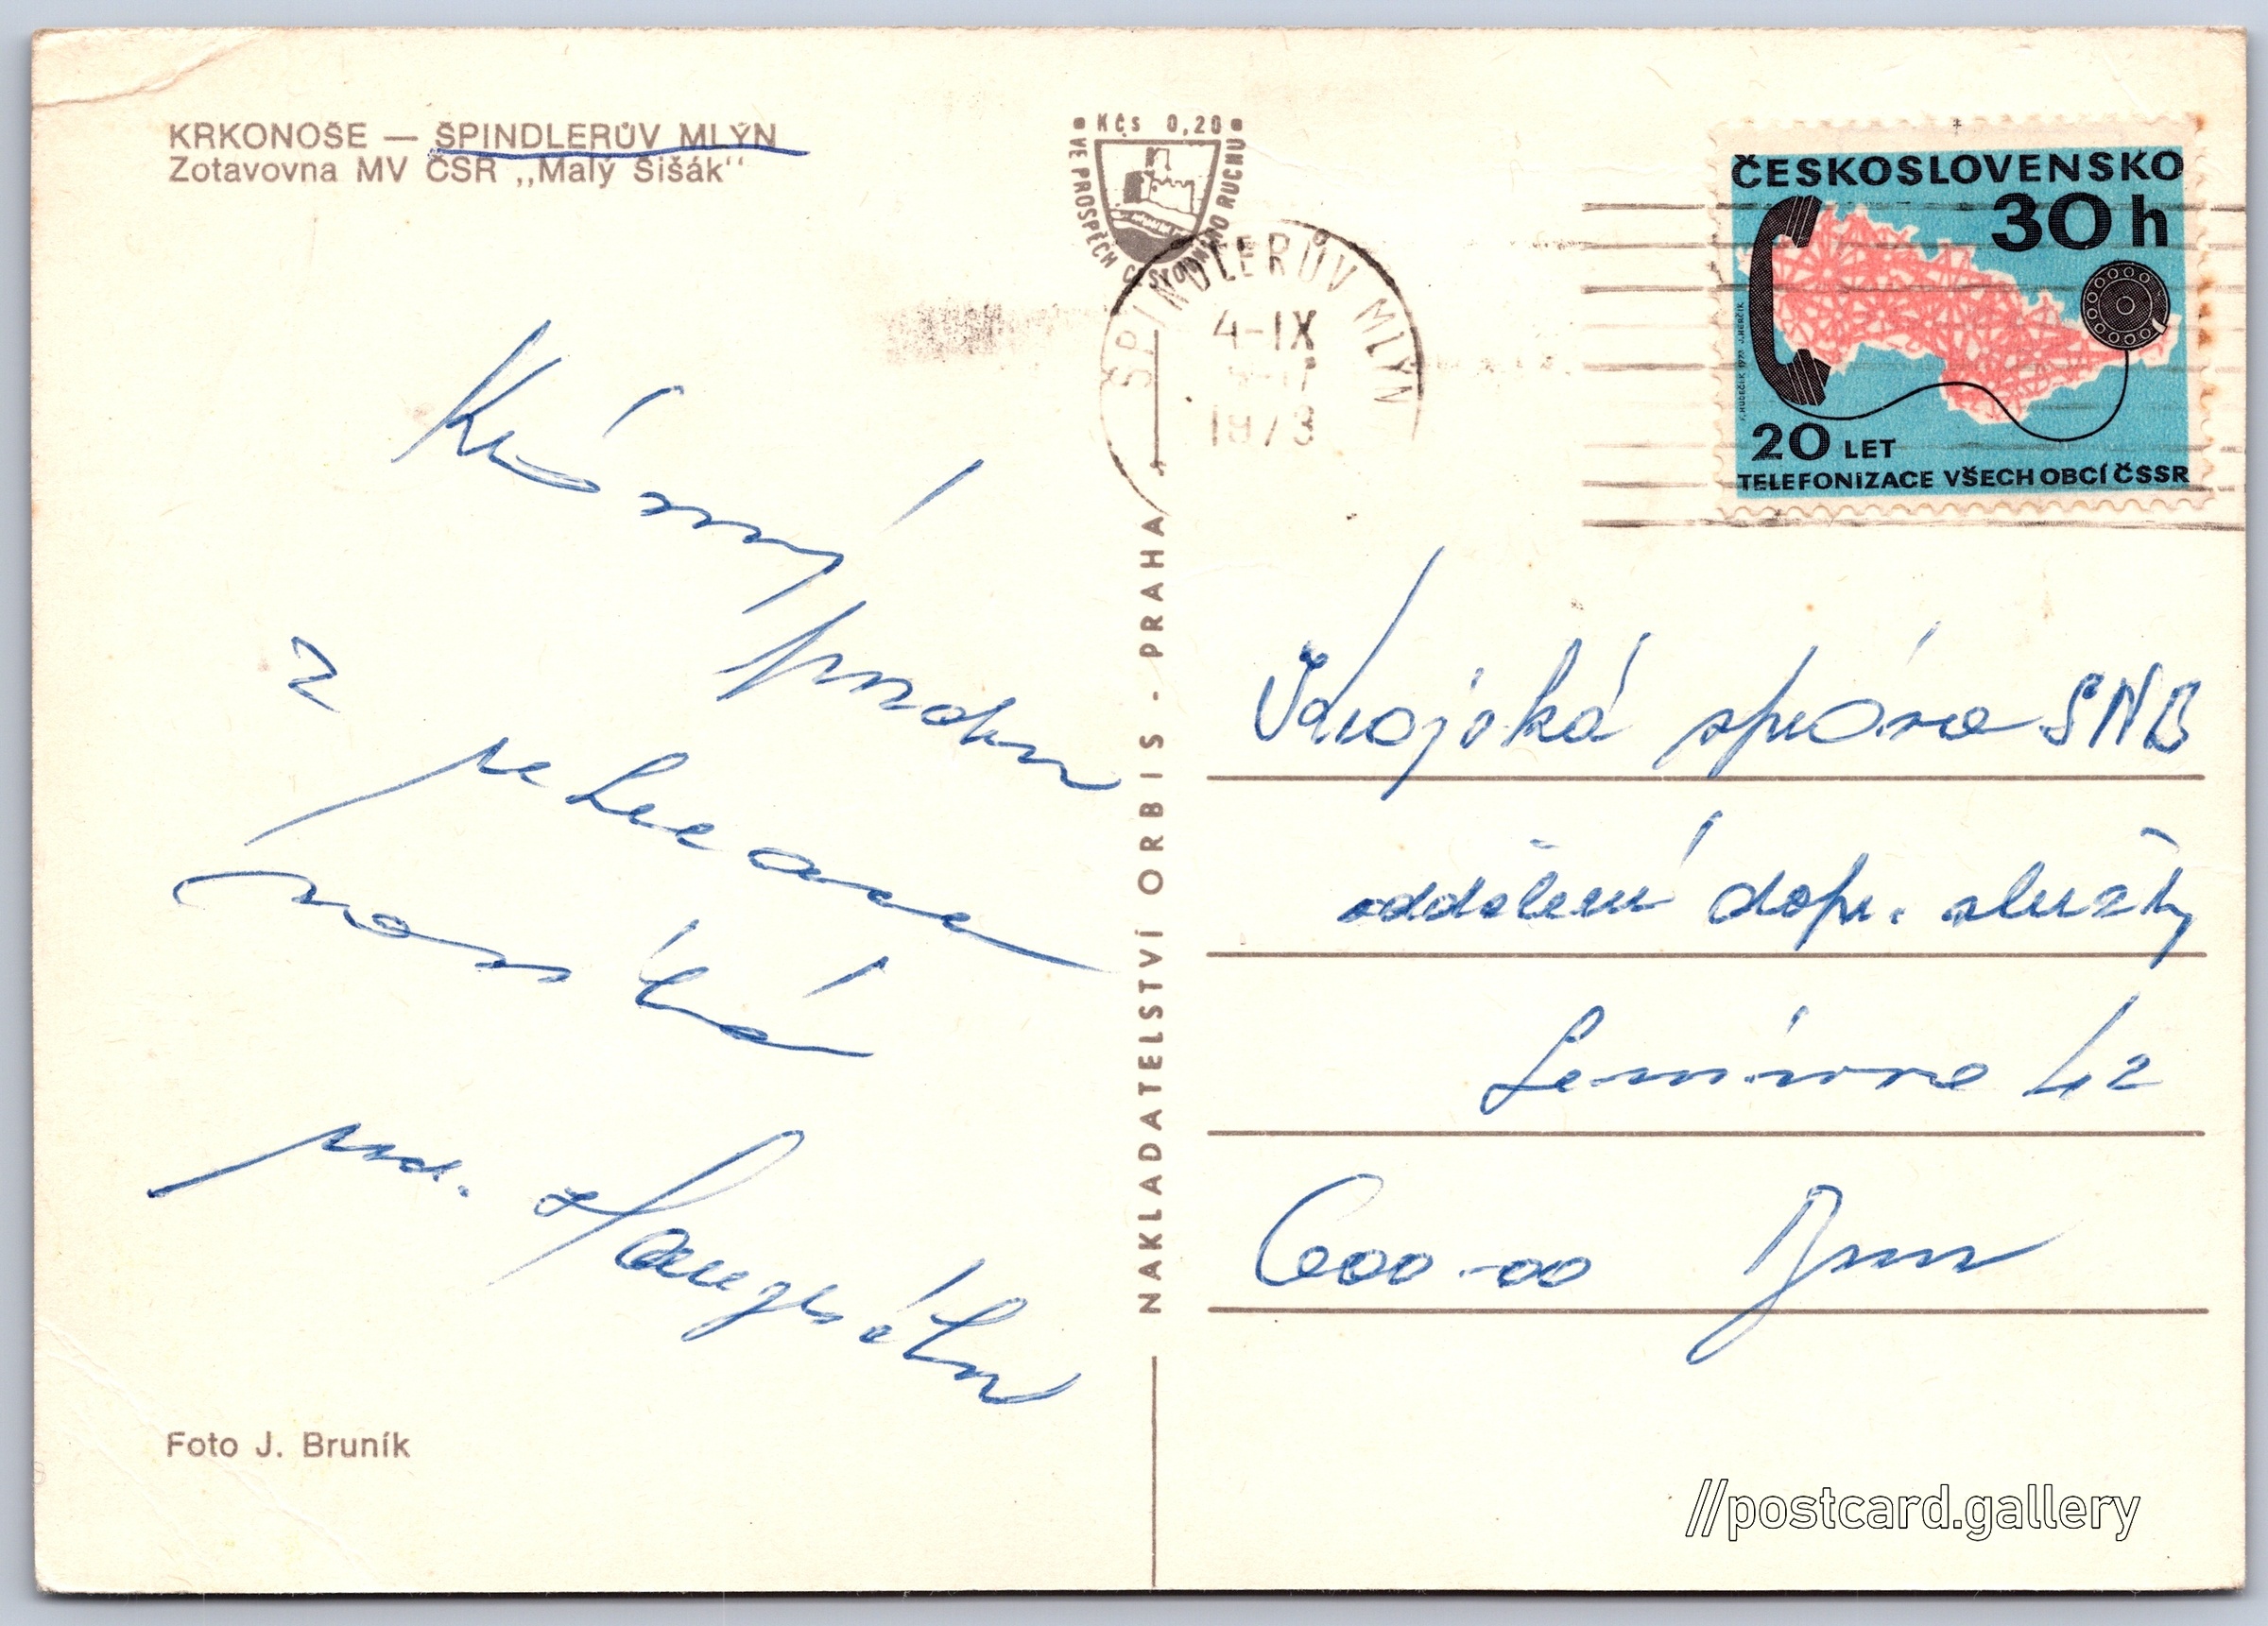 KRKONOŠE — ŠPINDLERŮV MLÝN
Zotavovna MV ČSR ,,Malý Šišák‘‘
Kčs 0,20
VE PROSPĚCH CESTOVNÍHO RUCHU
ŠPINDLERŮV MLÝN
4-IX
1973
ČESKOSLOVENSKO
30 h
F. HUDEČEK 1973 J. HERČÍK
20 LET
TELEFONIZACE VŠECH OBCÍ ČSSR
Krásný
pozdrav
z
rekreace
zasílá
Krajská správa SNB
oddělení dopr. služby
Lenínova 42
600-00 Brno
NAKLADATELSTVÍ ORBIS - PRAHA
Foto J. Bruník
//postcard.gallery